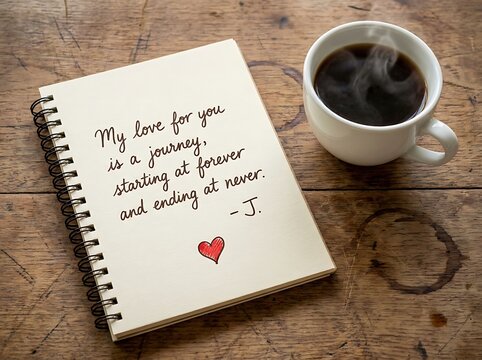 My love for you
is a journey,
starting at forever
and ending at never.
-J.